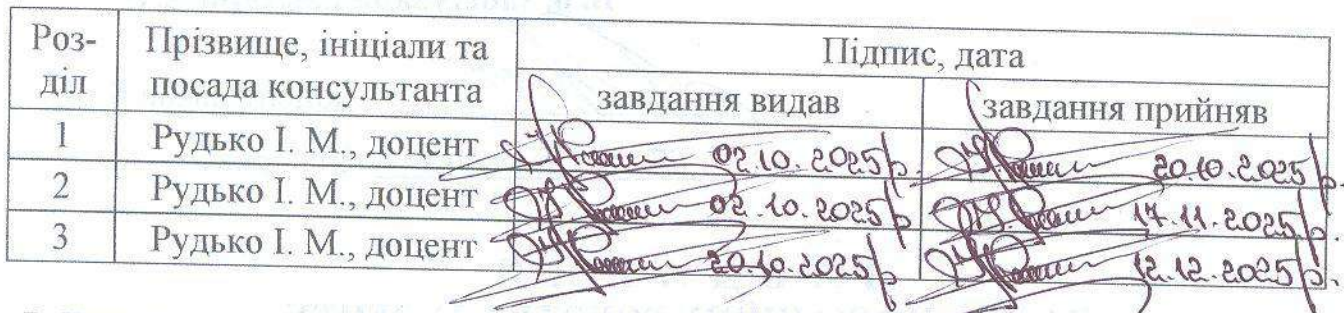 Роз-
діл
Прізвище, ініціали та
посада консультанта
Підпис, дата
завдання видав
завдання прийняв
1 Рудько І. М., доцент 02.10.2025р. 20.10.2025р.
2 Рудько І. М., доцент 02.10.2025р. 17.11.2025р.
3 Рудько І. М., доцент 20.10.2025р. 12.12.2025р.